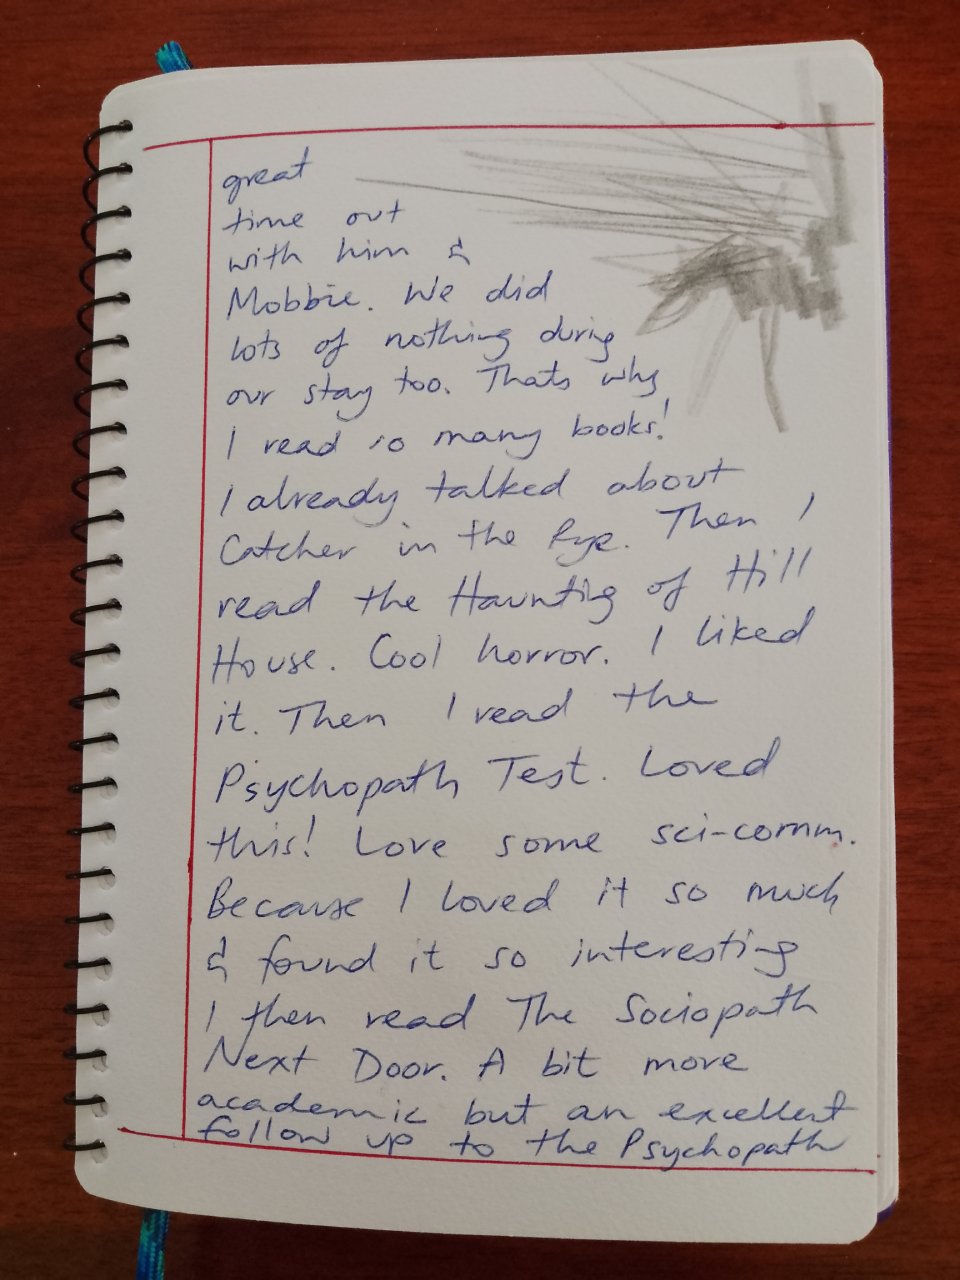 great
time out
with him &
Mobbie. We did
lots of nothing during
our stay too. Thats why
I read so many books!
I already talked about
Catcher in the Rye. Then I
read the Haunting of Hill
House. Cool horror. I liked
it. Then I read the
Psychopath Test. Loved
this! Love some sci-comm.
Because I loved it so much
& found it so interesting
I then read The Sociopath
Next Door. A bit more
academic but an excellent
follow up to the Psychopath